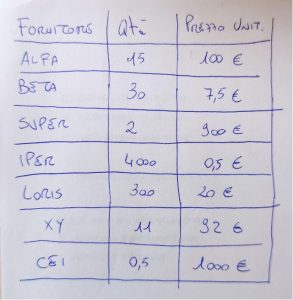 FORNITORE Qtà PREZZO UNIT.
ALFA 15 100 €
BETA 30 7,5 €
SUPER 2 900 €
IPER 4000 0,5 €
LORIS 300 20 €
XY 11 92 €
CEI 0,5 1000 €